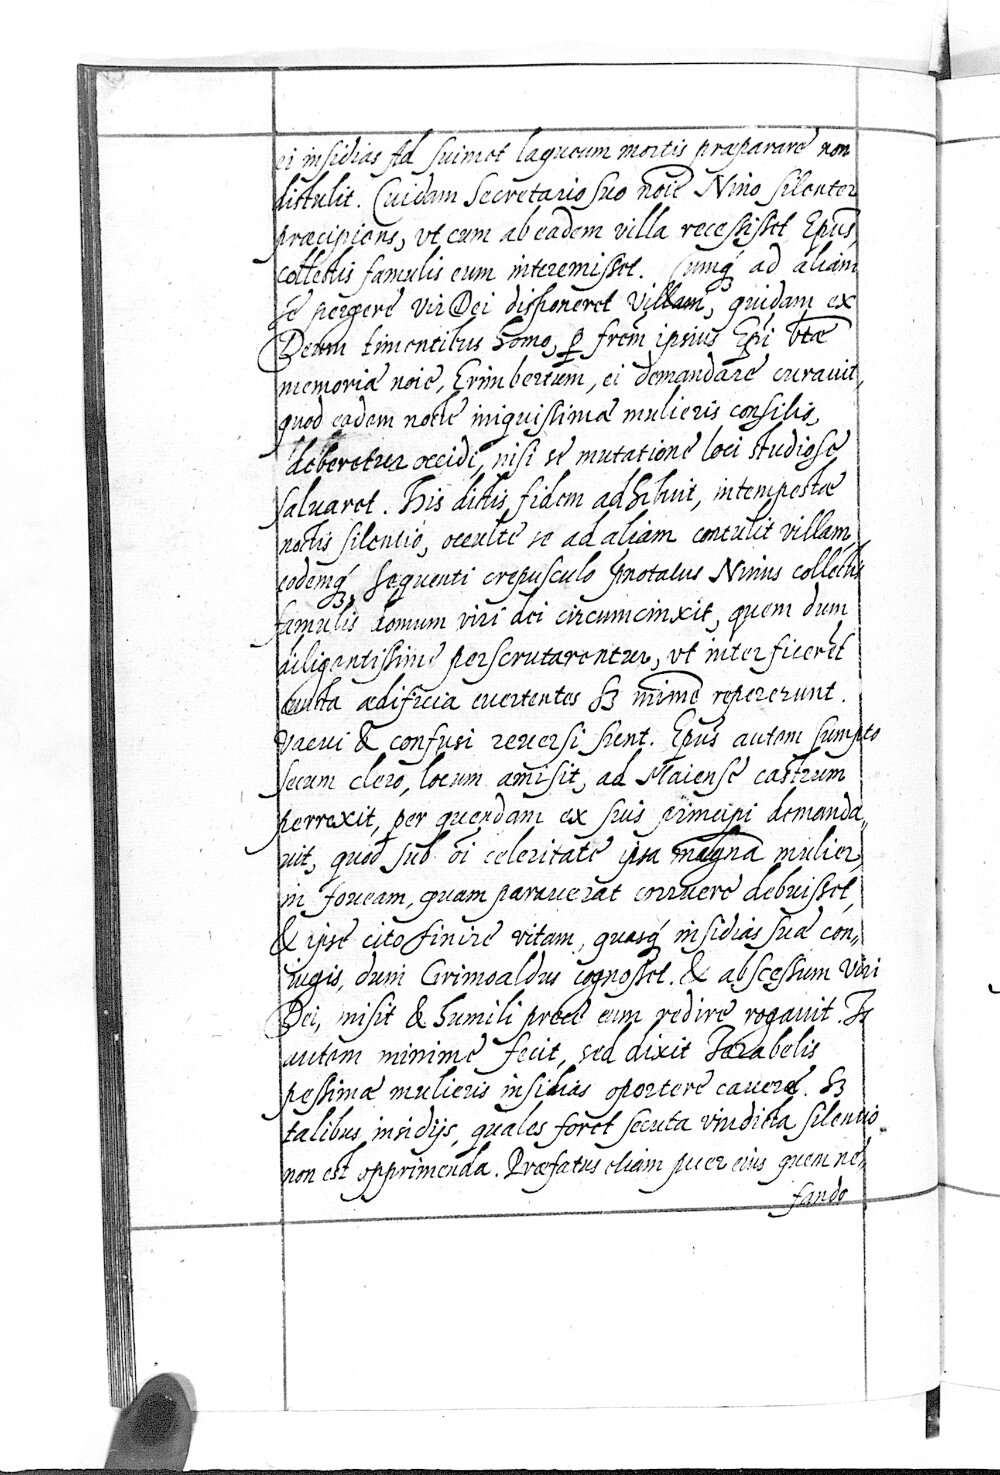 ei insidias ad suimet laqueum mortis præparare non
distulit. Cuidam Secretario suo noie Nino silenter
præcipiens, vt cum ab eadem villa recessisset Epus,
collectis famulis eum interemisset. Cumq; ad aliam
se pergere vir Dei disponeret villam, quidam ex
Deum timentibus homo, p frem ipsius Epi btæ
memoriæ noie, Erimbertum, ei demandare curauit,
quod eadem nocte iniquissimæ mulieris consilio,
deberetur occidi, nisi se mutatione loci studiose
saluaret. His dictis fidem adhibuit, intempestæ
noctis silentio, occulte se ad aliam contulit villam,
eodemq; sequenti crepusculo pnotatus Ninus collectis
famulis domum viri dei circumcinxit, quem dum
diligentissime perscrutarentur, vt interficeret
cuncta ædificia euertentes sz mime repererunt.
Vacui & confusi reuersi sient. Epus autem sumpto
secum clero, locum amisit, ad Maiense castrum
perrexit, per quendam ex suis principi demanda„
uit, quod sub oi celeritate ipsa magna mulier,
in foueam, quam parauerat corruere debuisset,
& ipse cito finire vitam, quasq; insidias suæ con„
iugis, dum Grimoaldus cognosset. & abscessum Viri
Dei, misit & humili prece eum redire rogauit. Is
autem minime fecit, sed dixit Iezabelis
pessimæ mulieris insidias oportere cauere. Sz
talibus insidijs, quales foret secuta vindicta silentio
non est opprimenda. Præfatus etiam puer eius quem ne„
fando